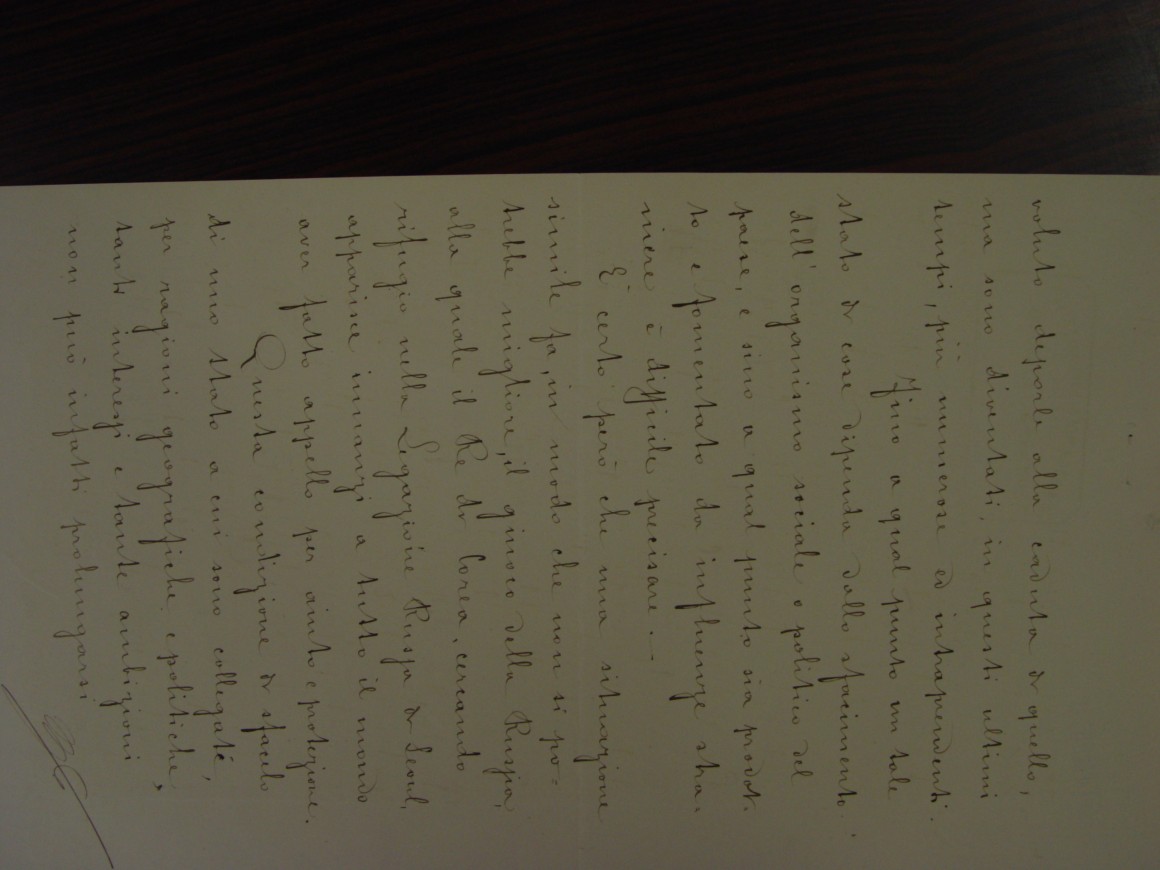 voluto deporle alla caduta di quello,
ma sono diventati, in questi ultimi
tempi, più numerose ed intraprendenti.
Fino a qual punto un tale
stato di cose dipenda dallo sfacimento
dell'organismo sociale o politico del
paese, e sino a qual punto sia prodot-
to e fomentato da influenze stra-
niere è difficile precisare. —
È certo però che una situazione
simile fa, in modo che non si po-
trebbe migliore, il giuoco della Russia,
alla quale il Re di Corea, cercando
rifugio nella Legazione Russa di Seoul,
apparisce innanzi a tutto il mondo
aver fatto appello per aiuto e protezione.
Questa condizione di sfacelo
di uno stato a cui sono collegate,
per ragioni geografiche e politiche,
tanti interessi e tante ambizioni
non può infatti prolungarsi